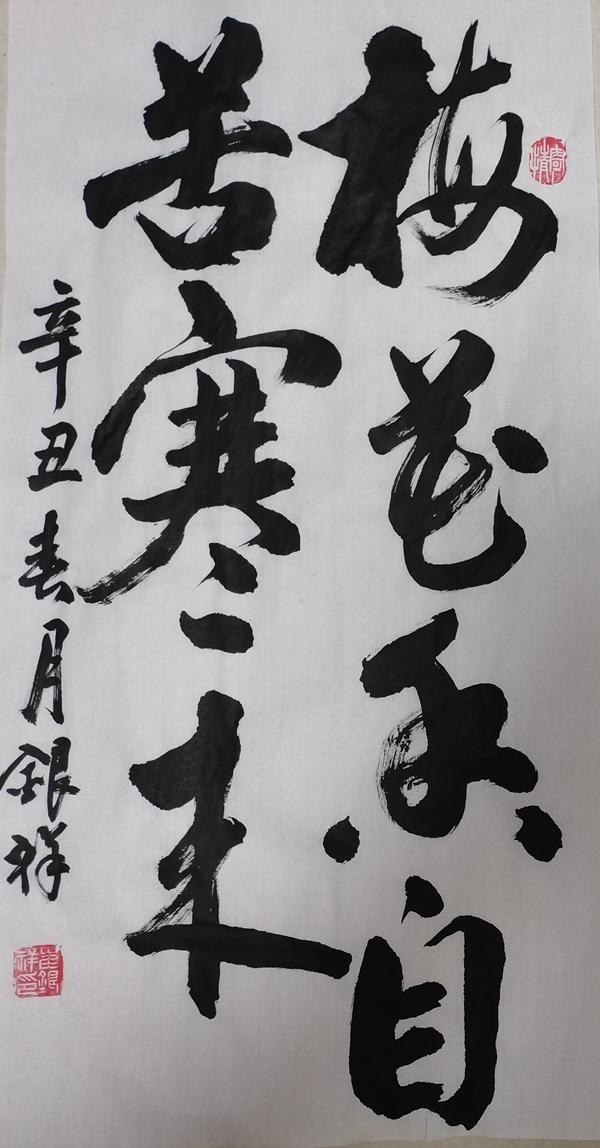 梅花香自
苦寒来
辛丑春月銀祥